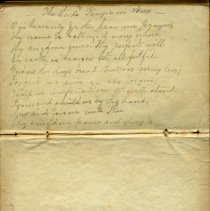 The Lord's Prayer in Verse
Our heavenly Father hear our prayer
Thy name be hallowed every where
Thy kingdom come thy perfect will
On earth as heaven let all fulfill
Give this days bread that we may live
Forgive our sins as we forgive
Help us temptation
From evil shield us by thy hand
Now and forever with Thee
Thy kingdom power and glory